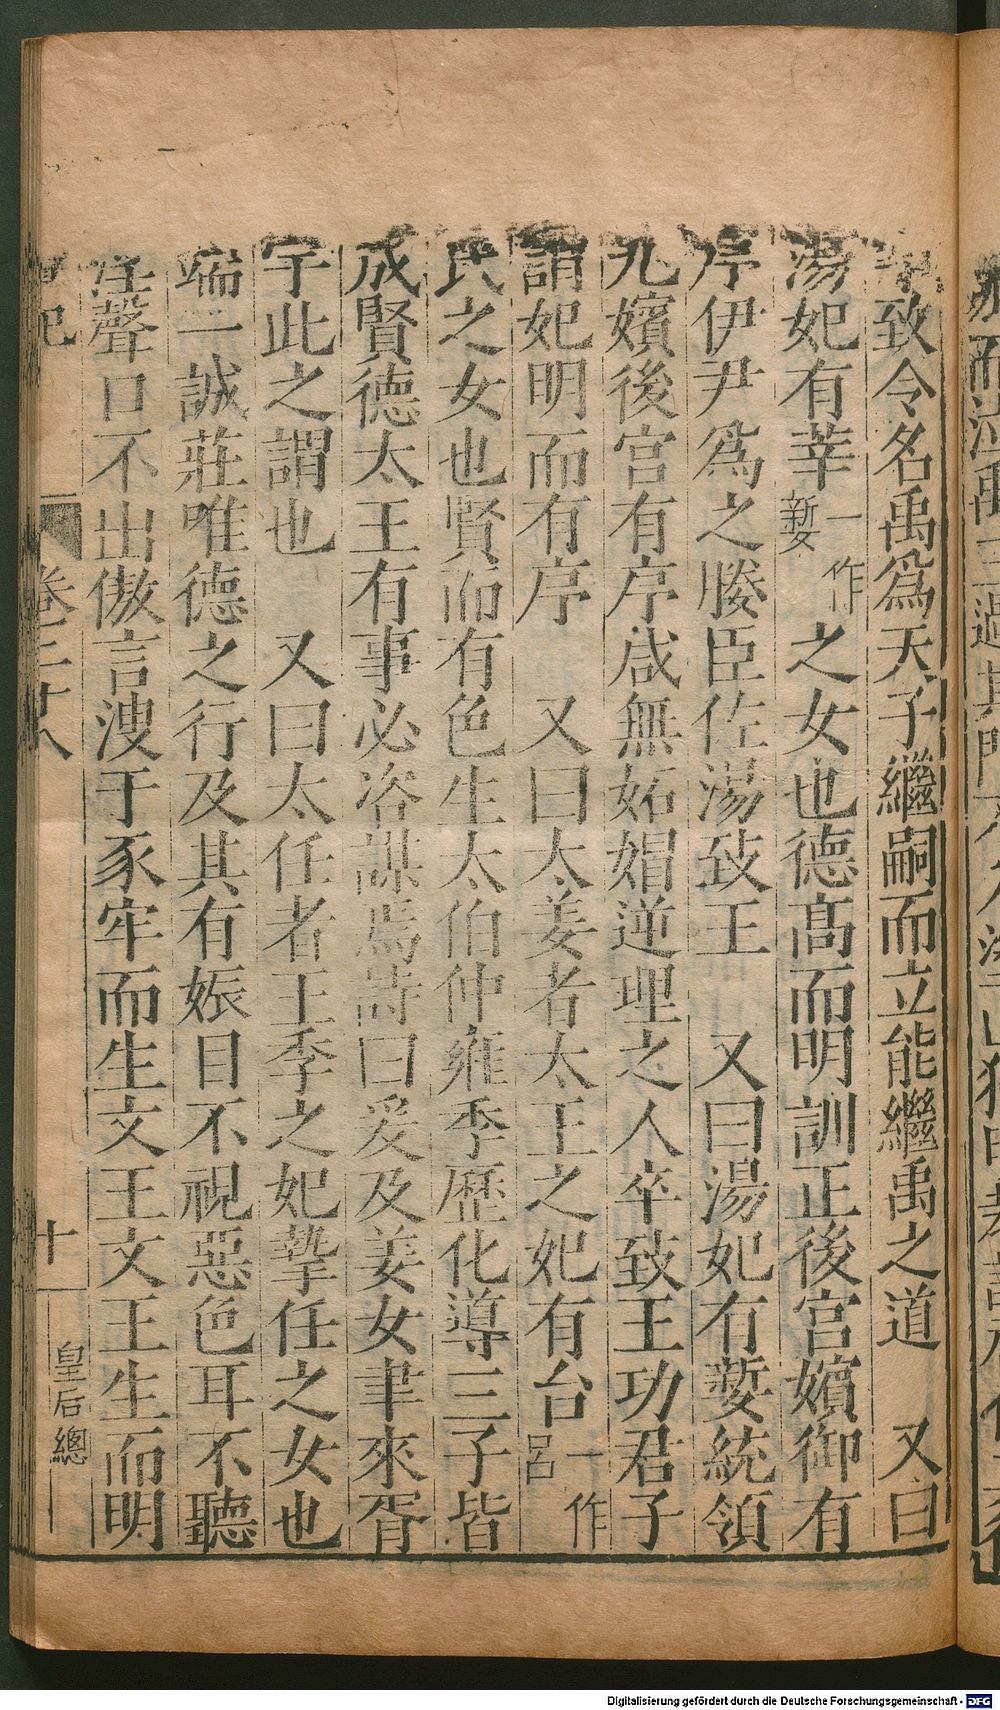 致令名禹爲天子繼嗣而立能繼禹之道　又曰
湯妃有莘一作新女之女也德高而明訓正後宮嬪御有
序伊尹爲之媵臣佐湯致王　又曰湯妃有㜪統領
九嬪後宮有序咸無妬媢逆理之人卒致王功君子
謂妃明而有序　又曰太姜者太王之妃有台一作呂
氏之女也賢而有色生太伯仲雍季歷化導三子皆
成賢德太王有事必咨謀焉詩曰爰及姜女聿來胥
宇此之謂也　又曰太任者王季之妃摯任之女也
端一誠莊唯德之行及其有娠目不視惡色耳不聽
淫聲口不出傲言溲于豕牢而生文王文王生而明
卷二十八　十　皇后總
Digitalisierung gefördert durch die Deutsche Forschungsgemeinschaft - DFG